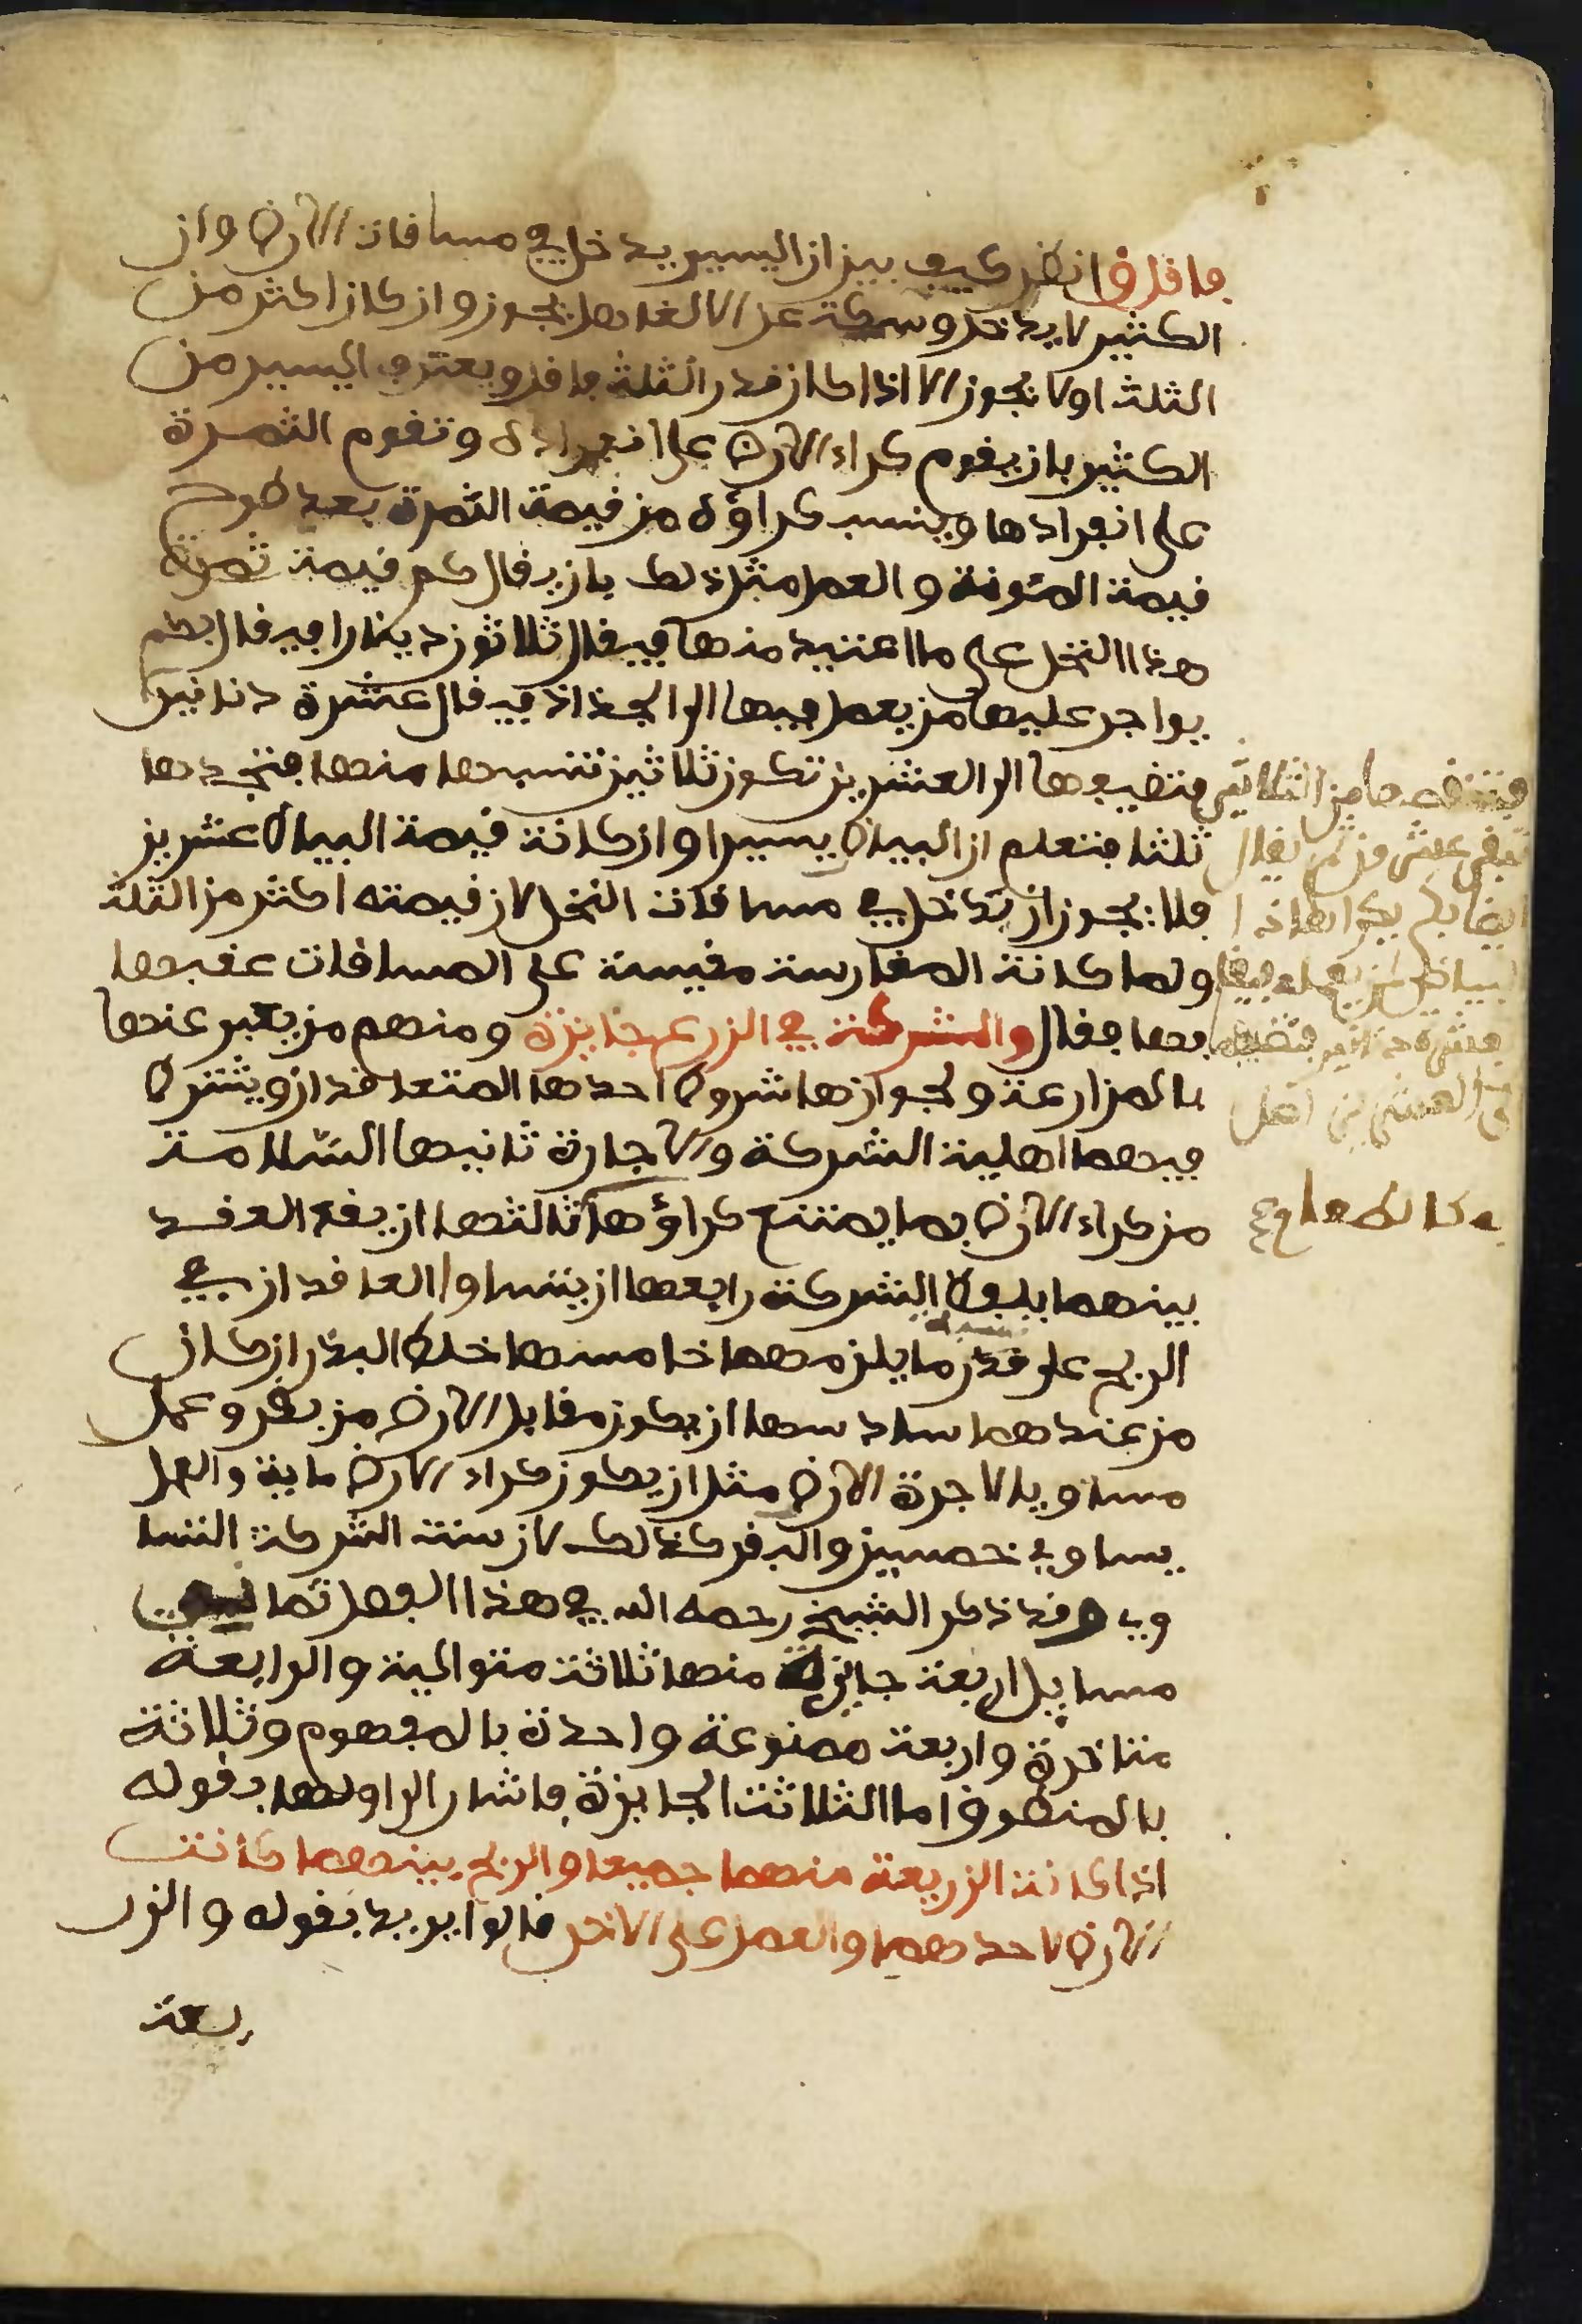 فاقل ق انظر كيف بين ان اليسير يدخل في مساقات الارض وان
الكثير لا يدخل وسكت عن الالغا هل يجوز وان كان اكثر من
الثلث اولا يجوز الا اذا كان قدر الثلث فاقل ويعتبر اليسير من
الكثير بان يقوم كراء الارض على انفراده وتقوم الثمرة
على انفرادها وينسب كراؤه من قيمة الثمرة بعد طرح
قيمة المئونة والعمل مثل ذلك بان يقال كم قيمة ثمرة
هذا النخل على ما اعتيد منها فيقال ثلاثون دينارا فيقال بكم
يواجر عليها من يعمل فيها الى الجذاذ فيقال عشرة دنانير
فتضيفها الى العشرين تكون ثلاثين تنسبها منها فتجدها
ثلثا فتعلم ان البياض يسيرا وان كانت قيمة البياض عشرين
فلا يجوز ان تدخل في مساقات النخل لان قيمته اكثر من الثلث
ولما كانت المغارسة مقيسة على المساقات عقبها
بها فقال والشركة في الزرع جايزة ومنهم من يعبر عنها
بالمزارعة ولجوازها شروط احدها المتعاقدان ويشترط
فيهما اهلية الشركة والاجارة ثانيها السلامة
من كراء الارض بما يمتنع كراؤها ثالثها ان يقع العقد
بينهما بلفظ الشركة رابعها ان يتساوا العاقدان في
الربح على قدر ما يلزمهما خامسها خلط البذر ان كان
من عندهما سادسها ان يكون مقابل الارض من بقر وعمل
مساويا لاجرة الارض مثل ان يكون كراء الارض ماية والعمل
يساوي خمسين والبقر كذلك لان سنة الشركة التسا
وي وقد ذكر الشيخ رحمه الله في هذا الفصل ثمانية
مسايل اربعة جايزة منها ثلاثة متوالية والرابعة
متاخرة واربعة ممنوعة واحدة بالمفهوم وثلاثة
بالمنطوق اما الثلاثة الجايزة فاشار الى اولها بقوله
اذا كانت الزريعة منهما جميعا والربح بينهما كانت
الارض لاحدهما والعمل على الاخر قالوا يريد بقوله والزر
يعة
فتنقصها من الثلاثين
تبقى عشرون ثم يقال
ايضا بكم يكرا هاذا
البياض لمن يعمله فيقال
بعشرة دنانير فتضيفها
الى العشرين